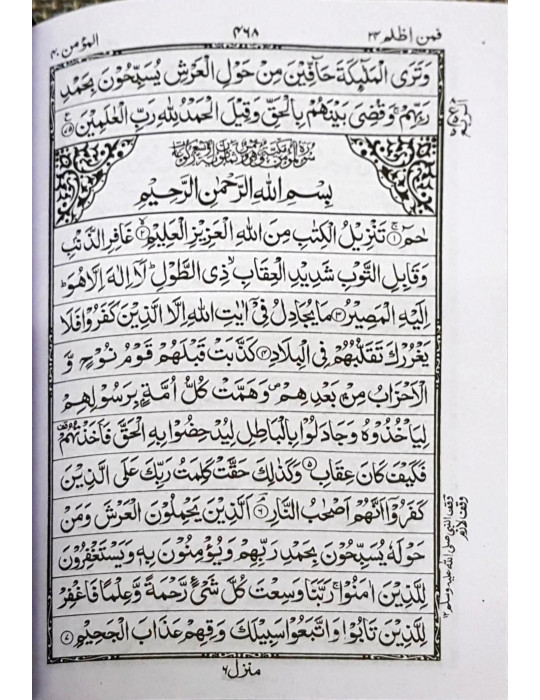 المؤمن ٤٠ ٤٦٨ فمن اظلم ٢٤
وَتَرَى الْمَلٰٓئِكَةَ حَآفِّيْنَ مِنْ حَوْلِ الْعَرْشِ يُسَبِّحُوْنَ بِحَمْدِ
رَبِّهِمْ ۚ وَقُضِيَ بَيْنَهُمْ بِالْحَقِّ وَقِيْلَ الْحَمْدُ لِلّٰهِ رَبِّ الْعٰلَمِيْنَ ۝٧٥
بِسْمِ اللّٰهِ الرَّحْمٰنِ الرَّحِيْمِ
حٰمٓ ۝١ تَنْزِيْلُ الْكِتٰبِ مِنَ اللّٰهِ الْعَزِيْزِ الْعَلِيْمِ ۝٢ غَافِرِ الذَّنْۢبِ
وَقَابِلِ التَّوْبِ شَدِيْدِ الْعِقَابِ ذِي الطَّوْلِ ؕ لَاۤ اِلٰهَ اِلَّا هُوَ ؕ
اِلَيْهِ الْمَصِيْرُ ۝٣ مَا يُجَادِلُ فِيْۤ اٰيٰتِ اللّٰهِ اِلَّا الَّذِيْنَ كَفَرُوْا فَلَا
يَغْرُرْكَ تَقَلُّبُهُمْ فِي الْبِلَادِ ۝٤ كَذَّبَتْ قَبْلَهُمْ قَوْمُ نُوْحٍ وَّ
الْاَحْزَابُ مِنْۢ بَعْدِهِمْ ۪ وَهَمَّتْ كُلُّ اُمَّةٍۭ بِرَسُوْلِهِمْ
لِيَاْخُذُوْهُ وَجَادَلُوْا بِالْبَاطِلِ لِيُدْحِضُوْا بِهِ الْحَقَّ فَاَخَذْتُهُمْ
فَكَيْفَ كَانَ عِقَابِ ۝٥ وَكَذٰلِكَ حَقَّتْ كَلِمَتُ رَبِّكَ عَلَى الَّذِيْنَ
كَفَرُوْۤا اَنَّهُمْ اَصْحٰبُ النَّارِ ۝٦ اَلَّذِيْنَ يَحْمِلُوْنَ الْعَرْشَ وَمَنْ
حَوْلَهٗ يُسَبِّحُوْنَ بِحَمْدِ رَبِّهِمْ وَيُؤْمِنُوْنَ بِهٖ وَيَسْتَغْفِرُوْنَ
لِلَّذِيْنَ اٰمَنُوْا ۚ رَبَّنَا وَسِعْتَ كُلَّ شَيْءٍ رَّحْمَةً وَّعِلْمًا فَاغْفِرْ
لِلَّذِيْنَ تَابُوْا وَاتَّبَعُوْا سَبِيْلَكَ وَقِهِمْ عَذَابَ الْجَحِيْمِ ۝٧
وقف النبی صلی اللہ علیہ وسلم ١٢
وقف لازم
منزل ٦